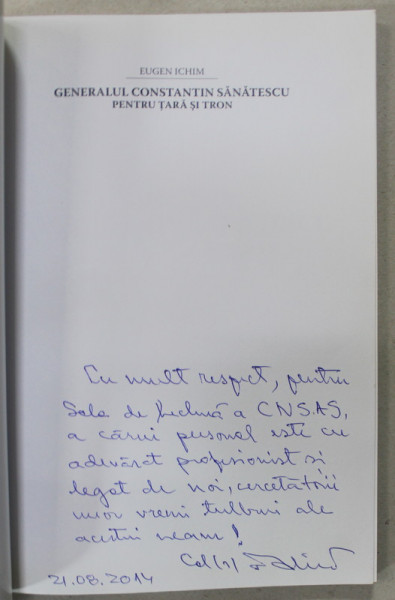 EUGEN ICHIM
GENERALUL CONSTANTIN SĂNĂTESCU
PENTRU ȚARĂ ȘI TRON
Cu mult respect, pentru
Sala de lectură a CNSAS,
a cărui personal este cu
adevărat profesionist si
legat de noi, cercetătorii
unor vremi tulburi ale
acestui neam!
Col(r)
21.08.2014